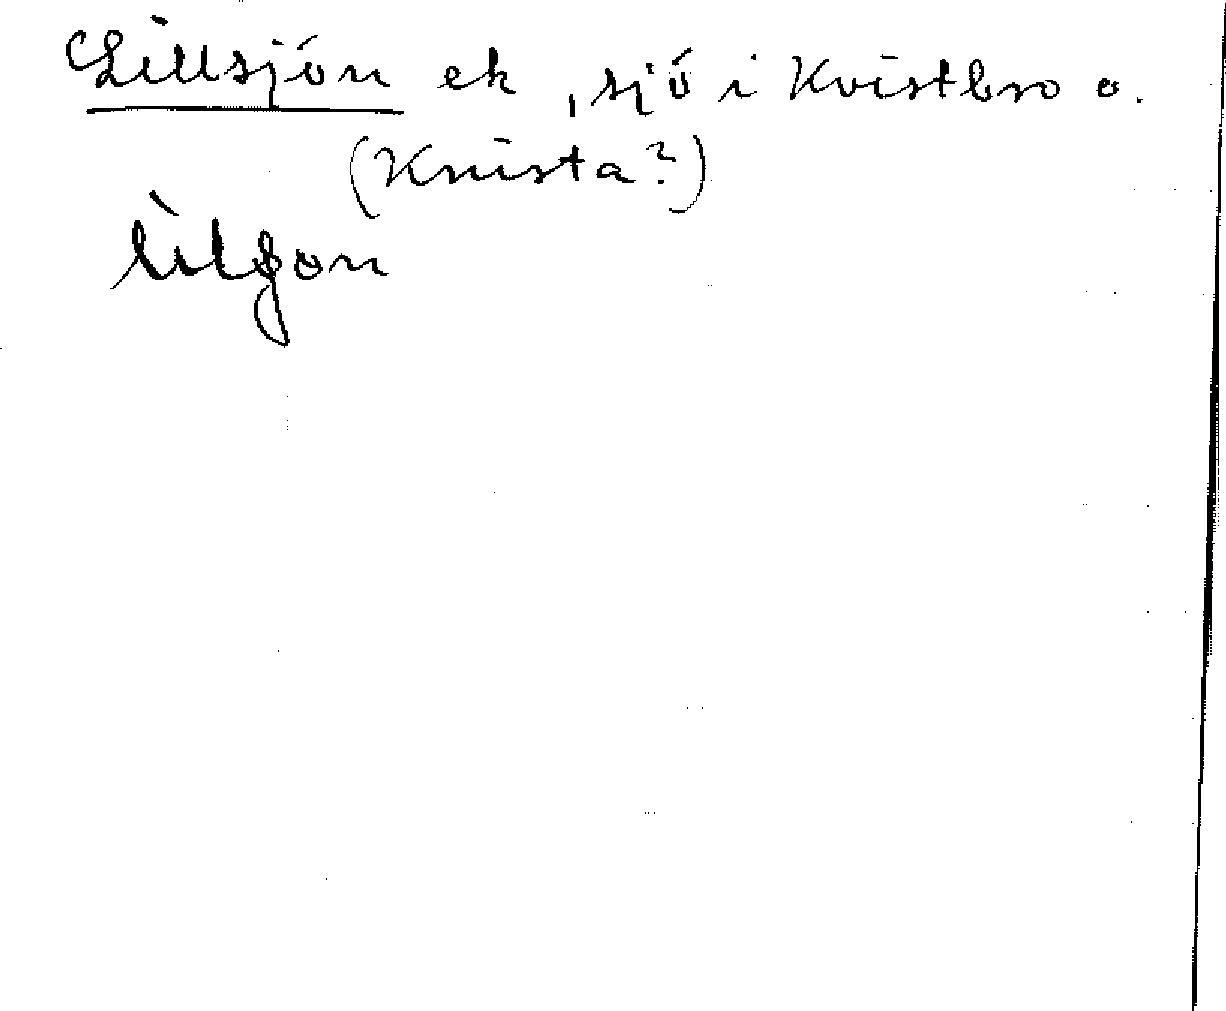 Lillsjön ek, sjö i Kvistbro o.
(Knista?)